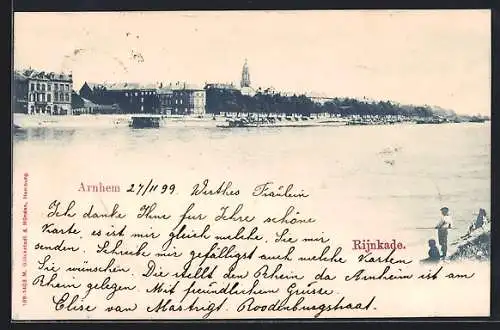 Arnhem 27/11 99 Werthes Fräulein
Ich danke Ihne fur Ihre schöne
Karte, es ist mir gleich welche Sie mir
senden. Schreibe mir gefälligst auch welche Karten
Sie wünschen. Die stellt den Rhein da Arnheim ist am
Rhein gelegen. Mit freundlichem Grüsse.
Elise van Mastrigt. Roodenburgstraat.
Rijnkade.
M. Glückstadt & Münden, Hamburg.